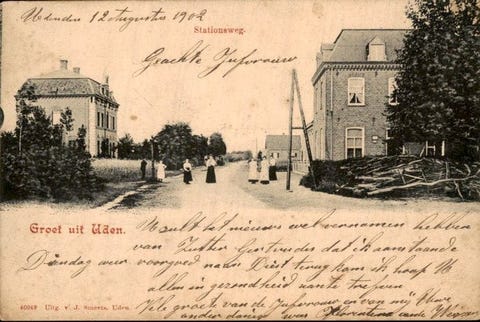 Udenden 12 Augustus 1902
Stationsweg.
Geachte Jufvrouw
Groet uit Uden.
U sult het nieuws wel vernomen hebben
van Zuster Gertrudes dat ik aanstaande
Dinsdag weer voorgoed naar Diest terug kom ik hoop U
allen in gezondheid aante treffen
Vele groet van de Jufvrouw en van mij Uwe
40949 Uitg. v. J. Smeets, Uden.